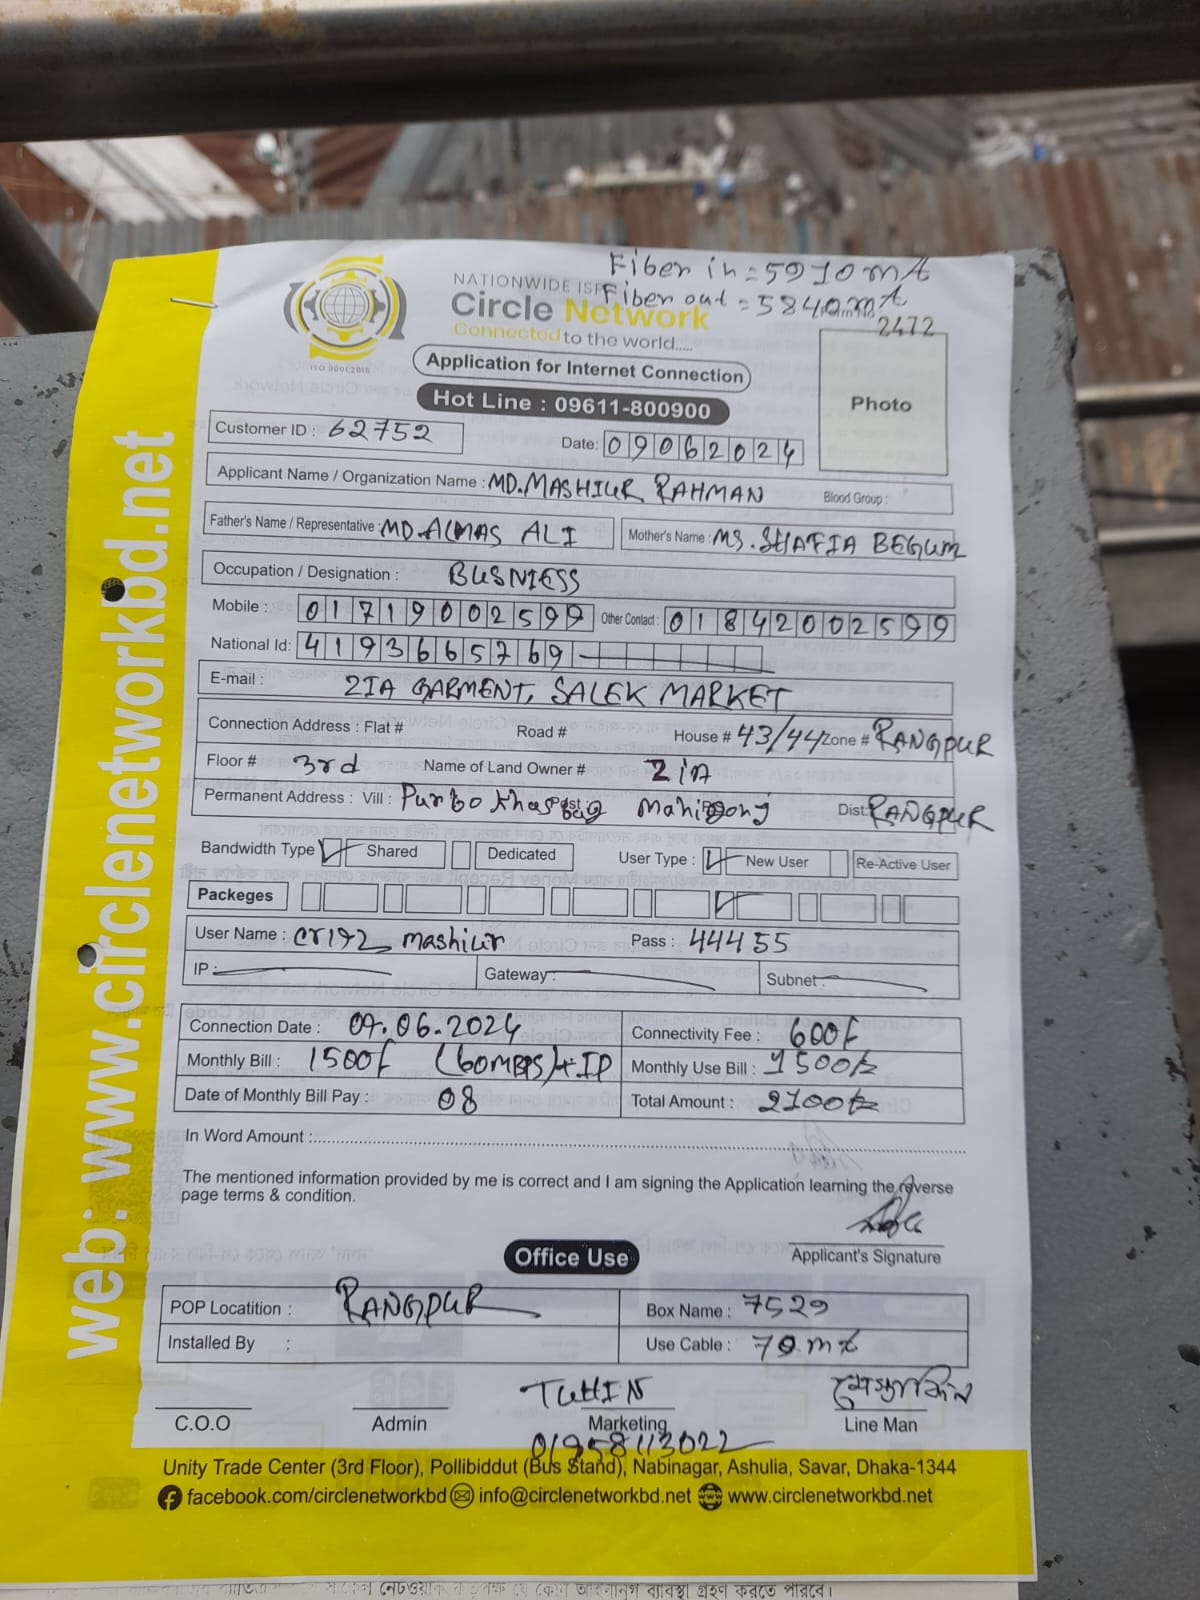 Fiber in = 5910 mt
NATIONWIDE ISP
Fiber out = 5840 mt
Circle Network
2472
Connected to the world.....
ISO 9001:2015
Application for Internet Connection
Hot Line : 09611-800900
Photo
Customer ID : 62752
Date: 09062024
Applicant Name / Organization Name : MD. MASHIUR RAHMAN Blood Group :
Father's Name / Representative : MD. ALMAS ALI Mother's Name : MS. SHAFIA BEGUM
Occupation / Designation : BUSNIESS
Mobile : 01719002599 Other Contact : 01842002599
National Id: 4193665769
E-mail : ZIA GARMENT, SALEK MARKET
Connection Address : Flat # Road # House # 43/44 Zone # RANGPUR
Floor # 3rd Name of Land Owner # ZiA
Permanent Address : Vill : Purbo Dist: RANGPUR
Bandwidth Type Shared Dedicated User Type : New User Re-Active User
Packeges
User Name : mashiur Pass : 44455
IP : Gateway : Subnet :
Connection Date : 09.06.2024 Connectivity Fee : 600/
Monthly Bill : 1500/ (60MBPS)+IP Monthly Use Bill : 1500tk
Date of Monthly Bill Pay : 08 Total Amount : 2100tk
In Word Amount :
The mentioned information provided by me is correct and I am signing the Application learning the reverse
page terms & condition.
Applicant's Signature
Office Use
POP Locatition : RANGPUR Box Name : 7529
Installed By : Use Cable : 70 mt
TUHIN
C.O.O Admin Marketing Line Man
01958113022
Unity Trade Center (3rd Floor), Pollibiddut (Bus Stand), Nabinagar, Ashulia, Savar, Dhaka-1344
facebook.com/circlenetworkbd info@circlenetworkbd.net www.circlenetworkbd.net
web: www.circlenetworkbd.net